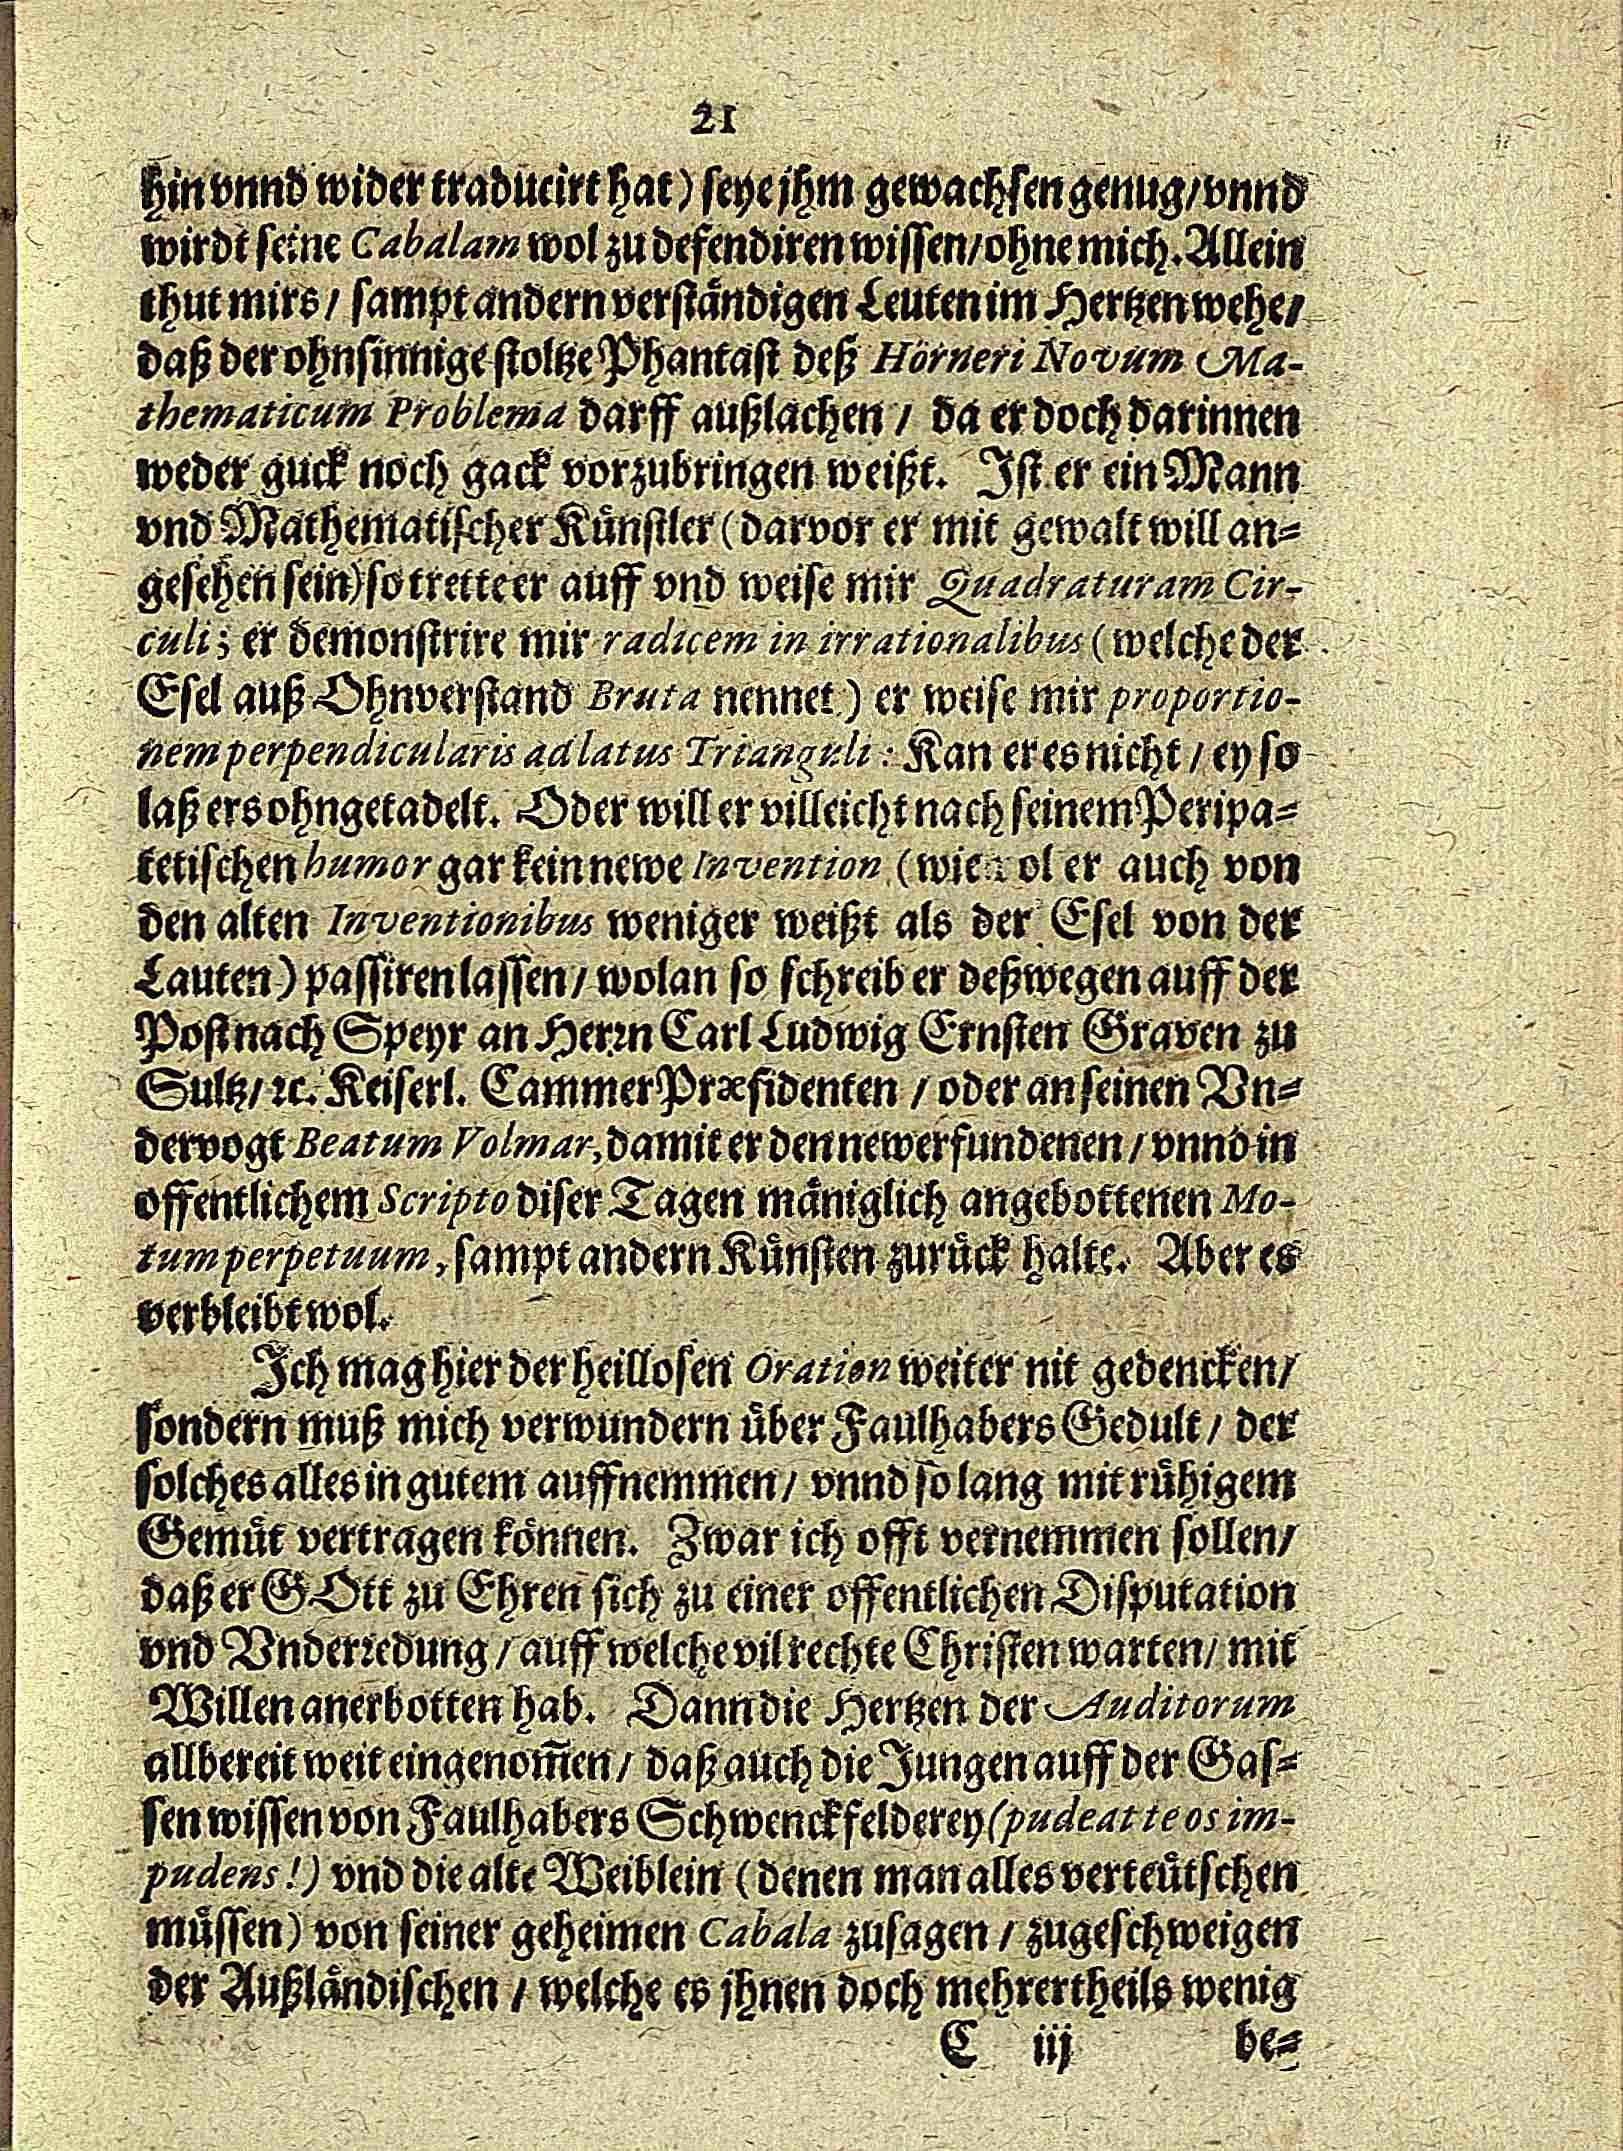 21
hin vnnd wider traducirt hat) seye jhm gewachsen genug/ vnnd
wirdt seine Cabalam wol zu defendiren wissen/ ohne mich. Allein
thut mirs/ sampt andern verständigen Leuten im Hertzen wehe/
daß der ohnsinnige stoltze Phantast deß Hörneri Novum Ma-
thematicum Problema darff außlachen/ da er doch darinnen
weder guck noch gack vorzubringen weißt. Ist er ein Mann
vnd Mathematischer Künstler (darvor er mit gewalt will an-
gesehen sein) so trette er auff vnd weise mir Quadraturam Cir-
culi; er demonstrire mir radicem in irrationalibus (welche der
Esel auß Ohnverstand Bruta nennet) er weise mir proportio-
nem perpendicularis ad latus Trianguli: Kan er es nicht/ ey so
laß ers ohngetadelt. Oder will er villeicht nach seinem Peripa-
tetischen humor gar kein newe Invention (wiewol er auch von
den alten Inventionibus weniger weißt als der Esel von der
Lauten) passiren lassen/ wolan so schreib er deßwegen auff der
Post nach Speyr an Herrn Carl Ludwig Ernsten Graven zu
Sultz/ ꝛc. Keiserl. Cammer Præsidenten/ oder an seinen Vn-
dervogt Beatum Volmar, damit er den newerfundenen/ vnnd in
offentlichem Scripto diser Tagen mäniglich angebottenen Mo-
tum perpetuum, sampt andern Künsten zurück halte. Aber es
verbleibt wol.
Ich mag hier der heillosen Oration weiter nit gedencken/
sondern muß mich verwundern über Faulhabers Gedult/ der
solches alles in gutem auffnemmen/ vnnd so lang mit rühigem
Gemüt vertragen können. Zwar ich offt vernemmen sollen/
daß er GOtt zu Ehren sich zu einer offentlichen Disputation
vnd Vnderredung/ auff welche vil rechte Christen warten/ mit
Willen anerbotten hab. Dann die Hertzen der Auditorum
allbereit weit eingenom̃en/ daß auch die Jungen auff der Gas-
sen wissen von Faulhabers Schwenckfelderey (pudeat te os im-
pudens!) vnd die alte Weiblein (denen man alles verteütschen
müssen) von seiner geheimen Cabala zusagen/ zugeschweigen
der Außländischen/ welche es jhnen doch mehrertheils wenig
C iij be-